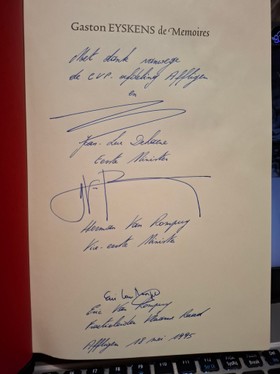 Gaston EYSKENS de Memoires
Met dank vanwege
de CVP. afdeling Affligem
en
Jean-Luc Dehaene
Eerste Minister
Herman Van Rompuy
Vice-eerste Minister
Eric Van Rompuy
Affligem 18 mei 1995